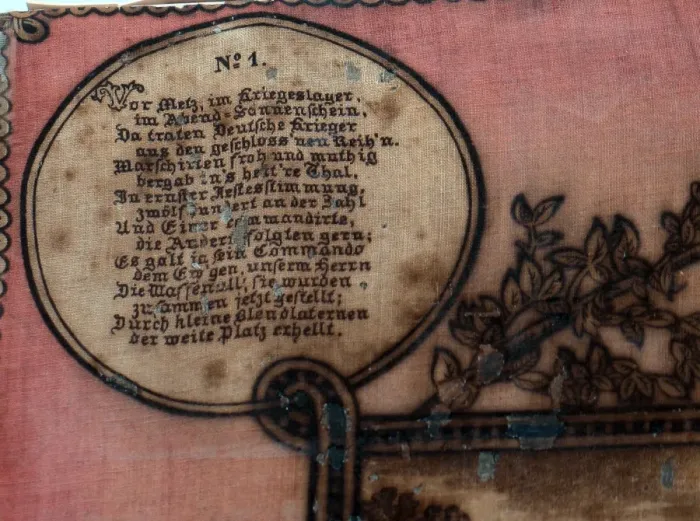 No 1.
Vor Metz, im Kriegeslager,
im Abend-Sonnenschein,
Da traten Deutsche Krieger
aus den geschloss'nen Reih'n.
Marschirten froh und muthig
bergab in's heit're Thal,
In ernster Festesstimmung,
zwölfhundert an der Zahl
Und Einer commandirte,
die Andern folgten gern;
Es galt ja sein Commando
dem Ew'gen, unserm Herrn
Die Waffen all', sie wurden
zusammen jetzt gestellt;
Durch kleine Blendlaternen
der weite Platz erhellt.